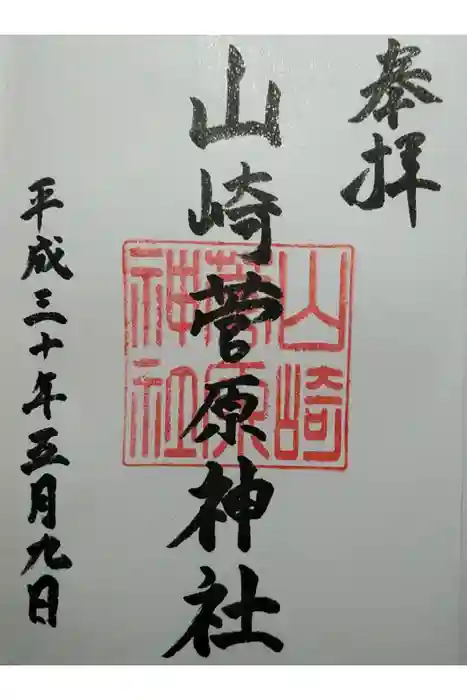 奉拝
山崎菅原神社
山崎
菅原
神社
平成三十年五月九日